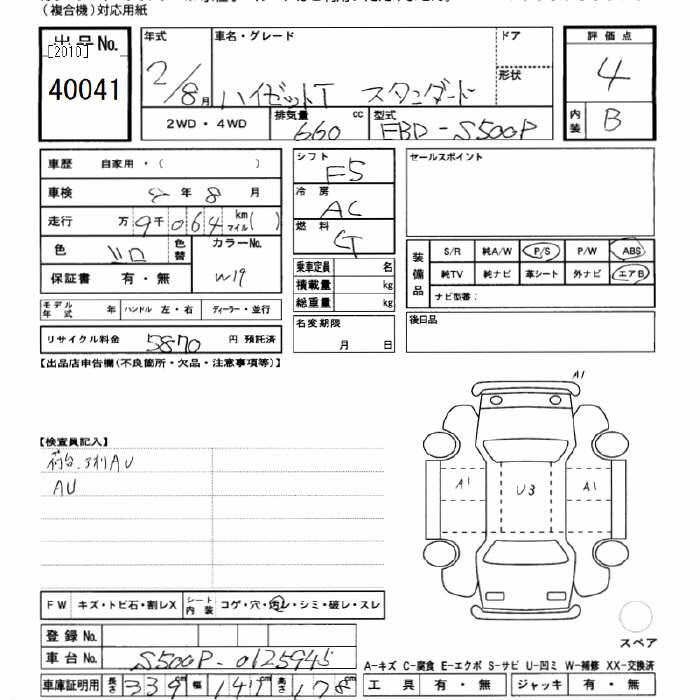 （複合機）対応用紙
出品No.
[2010]
40041
年式
2/8月
車名・グレード
ハイゼットT スタンダード
ドア
形状
2WD・4WD
排気量 cc
660
型式
EBD-S500P
評価点
4
内装
B
車歴 自家用・( )
車検 2年8月
走行 万9千064 km マイル( )
色 シロ
色替
カラーNo.
W19
保証書 有・無
モデル年式 年 ハンドル 左・右 ディーラー・並行
リサイクル料金 5870 円 預託済
シフト
F5
冷房
AC
燃料
G
乗車定員 名
積載量 kg
総重量 kg
名変期限
月 日
セールスポイント
装備品
S/R 純A/W P/S P/W ABS
純TV 純ナビ 革シート 外ナビ エアB
ナビ型番：
後日品
【出品店申告欄(不良箇所・欠品・注意事項等)】
【検査員記入】
荷台、アオリAU
AU
A1
A1
U3
A1
FW キズ・トビ石・割レX
シート内装 コゲ・穴・汚レ・シミ・破レ・スレ
登録No.
車台No. S500P-0125945
スペア
A-キズ C-腐食 E-エクボ S-サビ U-凹ミ W-補修 XX-交換済
車庫証明用 長さ 339cm 幅 147cm 高さ 178cm
工具 有・無 ジャッキ 有・無